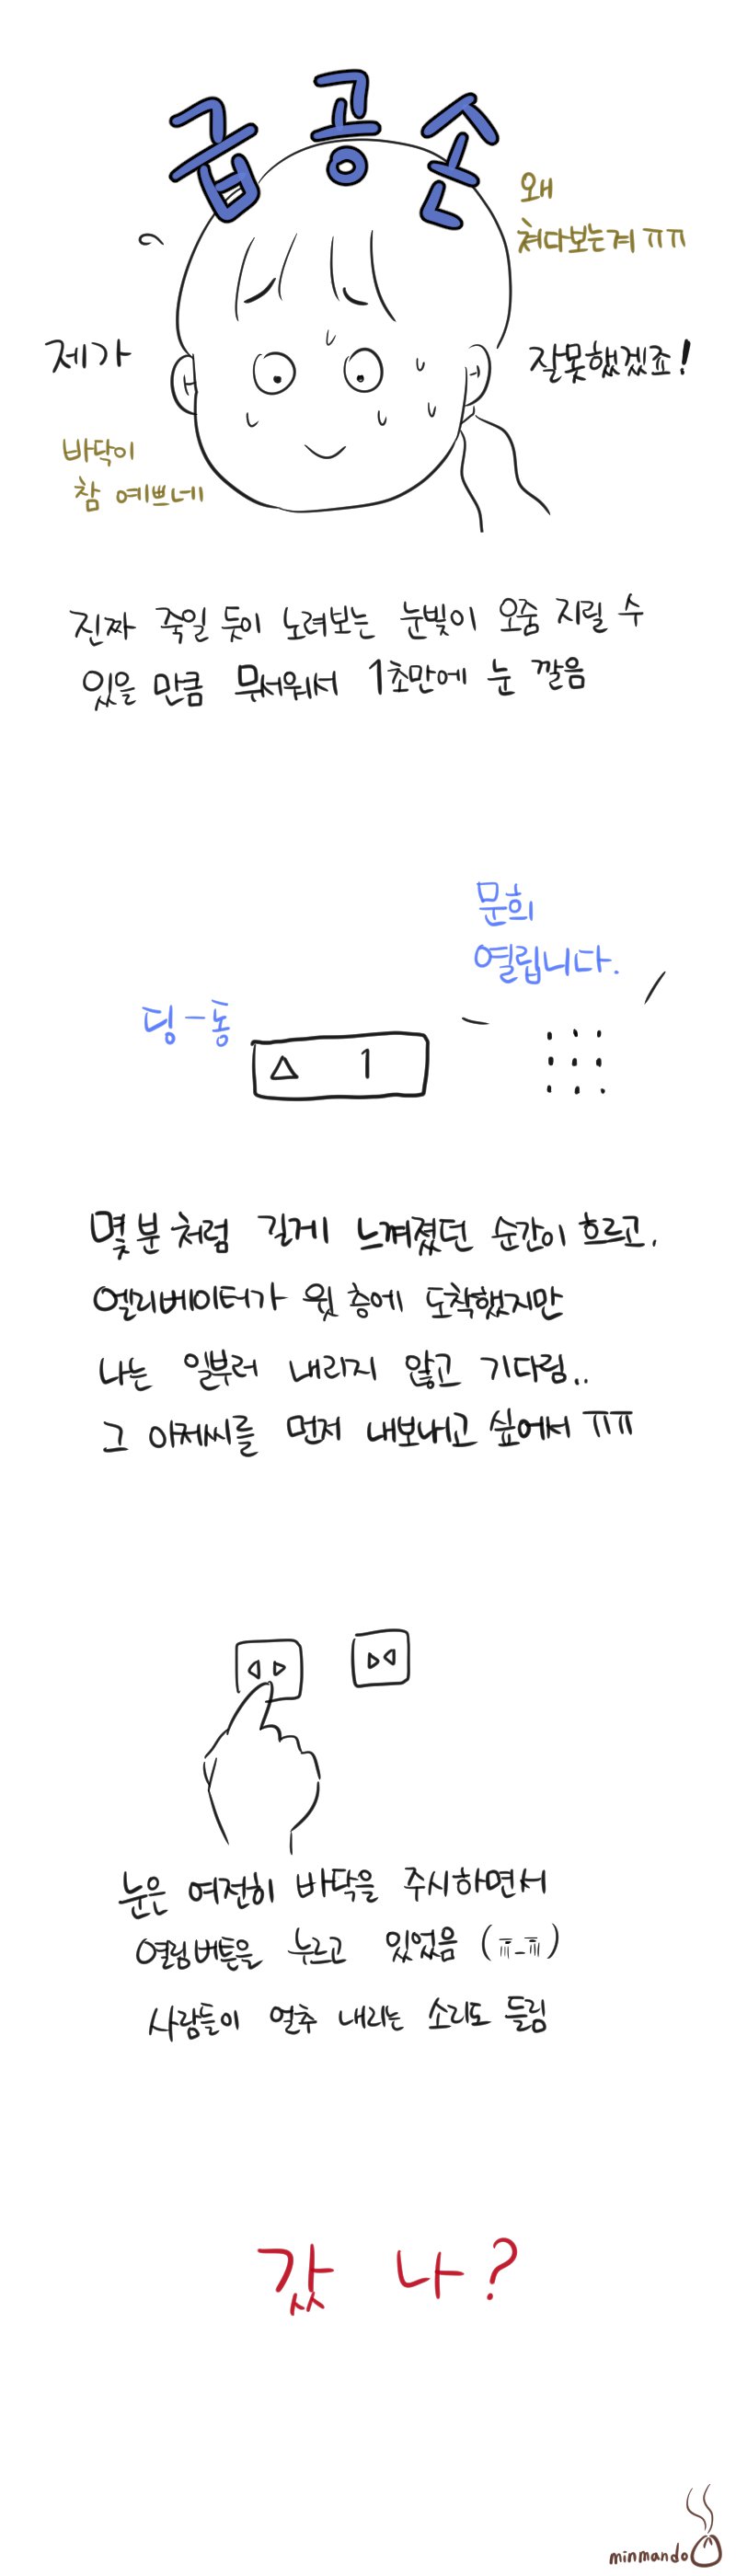 급공손
왜
쳐다보는겨 ㅠㅠ
제가
잘못했겠죠!
바닥이
참 예쁘네
진짜 죽일 듯이 노려보는 눈빛이 오줌 지릴 수
있을 만큼 무서워서 1초만에 눈 깔음
문희
열립니다.
딩-동
△ 1
몇 분 처럼 길게 느껴졌던 순간이 흐르고.
엘리베이터가 윗 층에 도착했지만
나는 일부러 내리지 않고 기다림..
그 아저씨를 먼저 내보내고 싶어서 ㅠㅠ
눈은 여전히 바닥을 주시하면서
열림버튼을 누르고 있었음 (ㅠ_ㅠ)
사람들이 얼추 내리는 소리도 들림
갔 나?
minmando